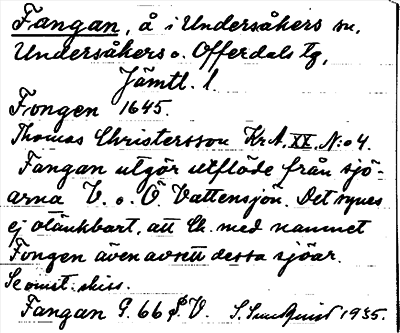 Fangan, å i Undersåkers sn,
Undersåkers o. Offerdals tg,
Jämtl. l.
Fongen 1645.
Thomas Christersson Kr.A. XX, N:o 4.
Fangan utgör utflöde från sjö-
arna V. o. Ö Vattensjön. Det synes
ej otänkbart, att Ch. med namnet
Fongen även avsett dessa sjöar.
Se omst. skiss.
Fangan G. 66 S.V. S. Sundquist 1935.